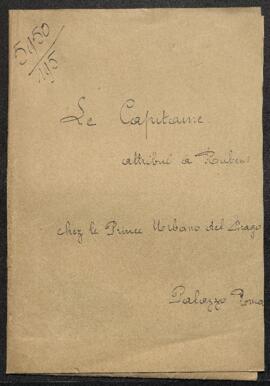 5150/115
Le Capitaine
attribué a Rubens
chez le Prince Urbano del Drago
Palazzo Roma